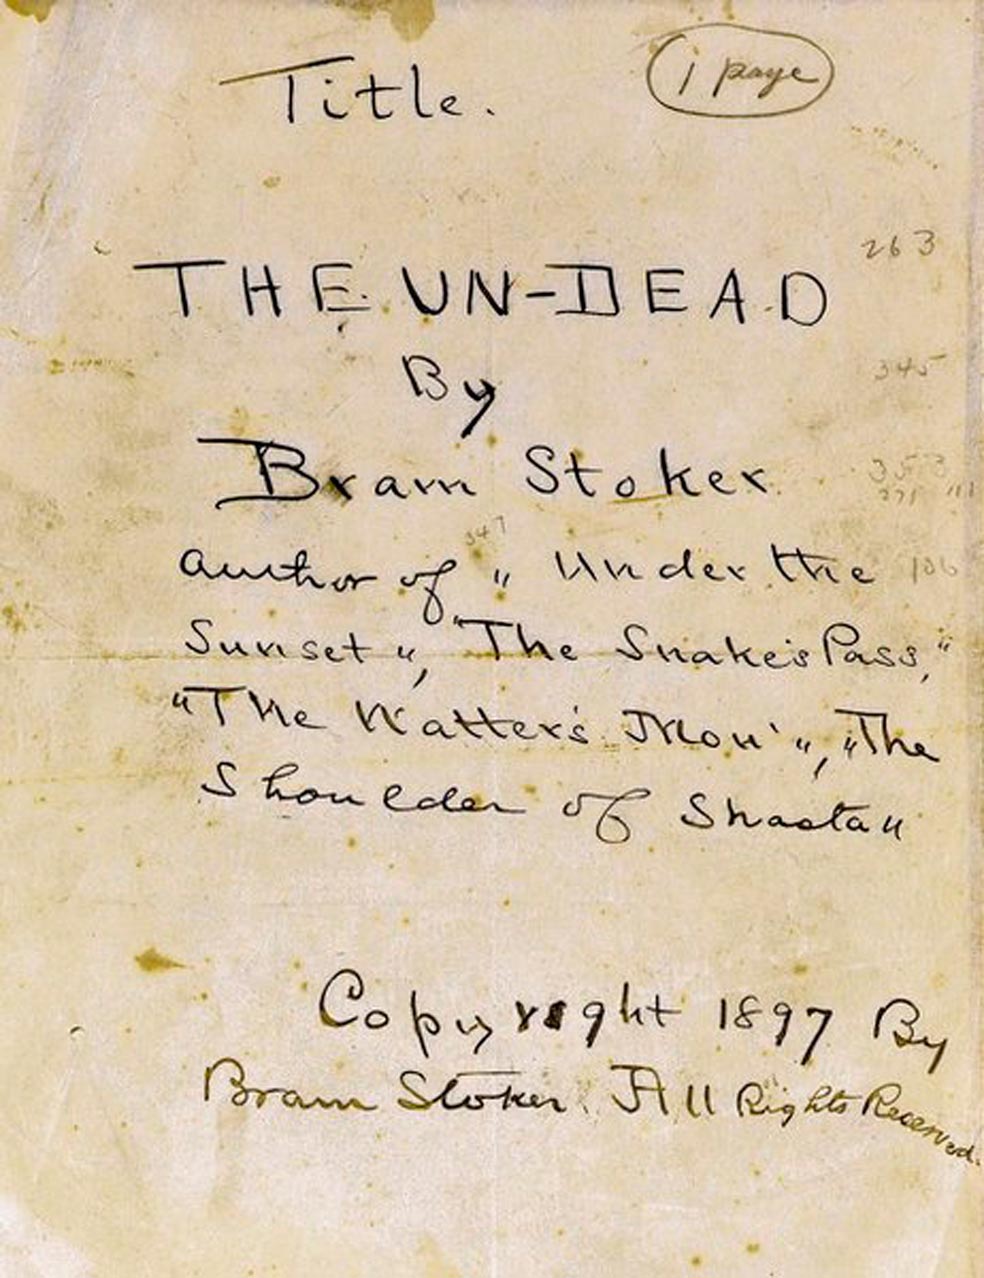 Title.
1 page
263
THE UN-DEAD
By
345
Bram Stoker
353
author of „ Under the
106
Sunset", "The Snake's Pass,"
"The Watter's Mou' ", "The
Shoulder of Shasta"
Copyright 1897 By
Bram Stoker. All Rights Reserved.